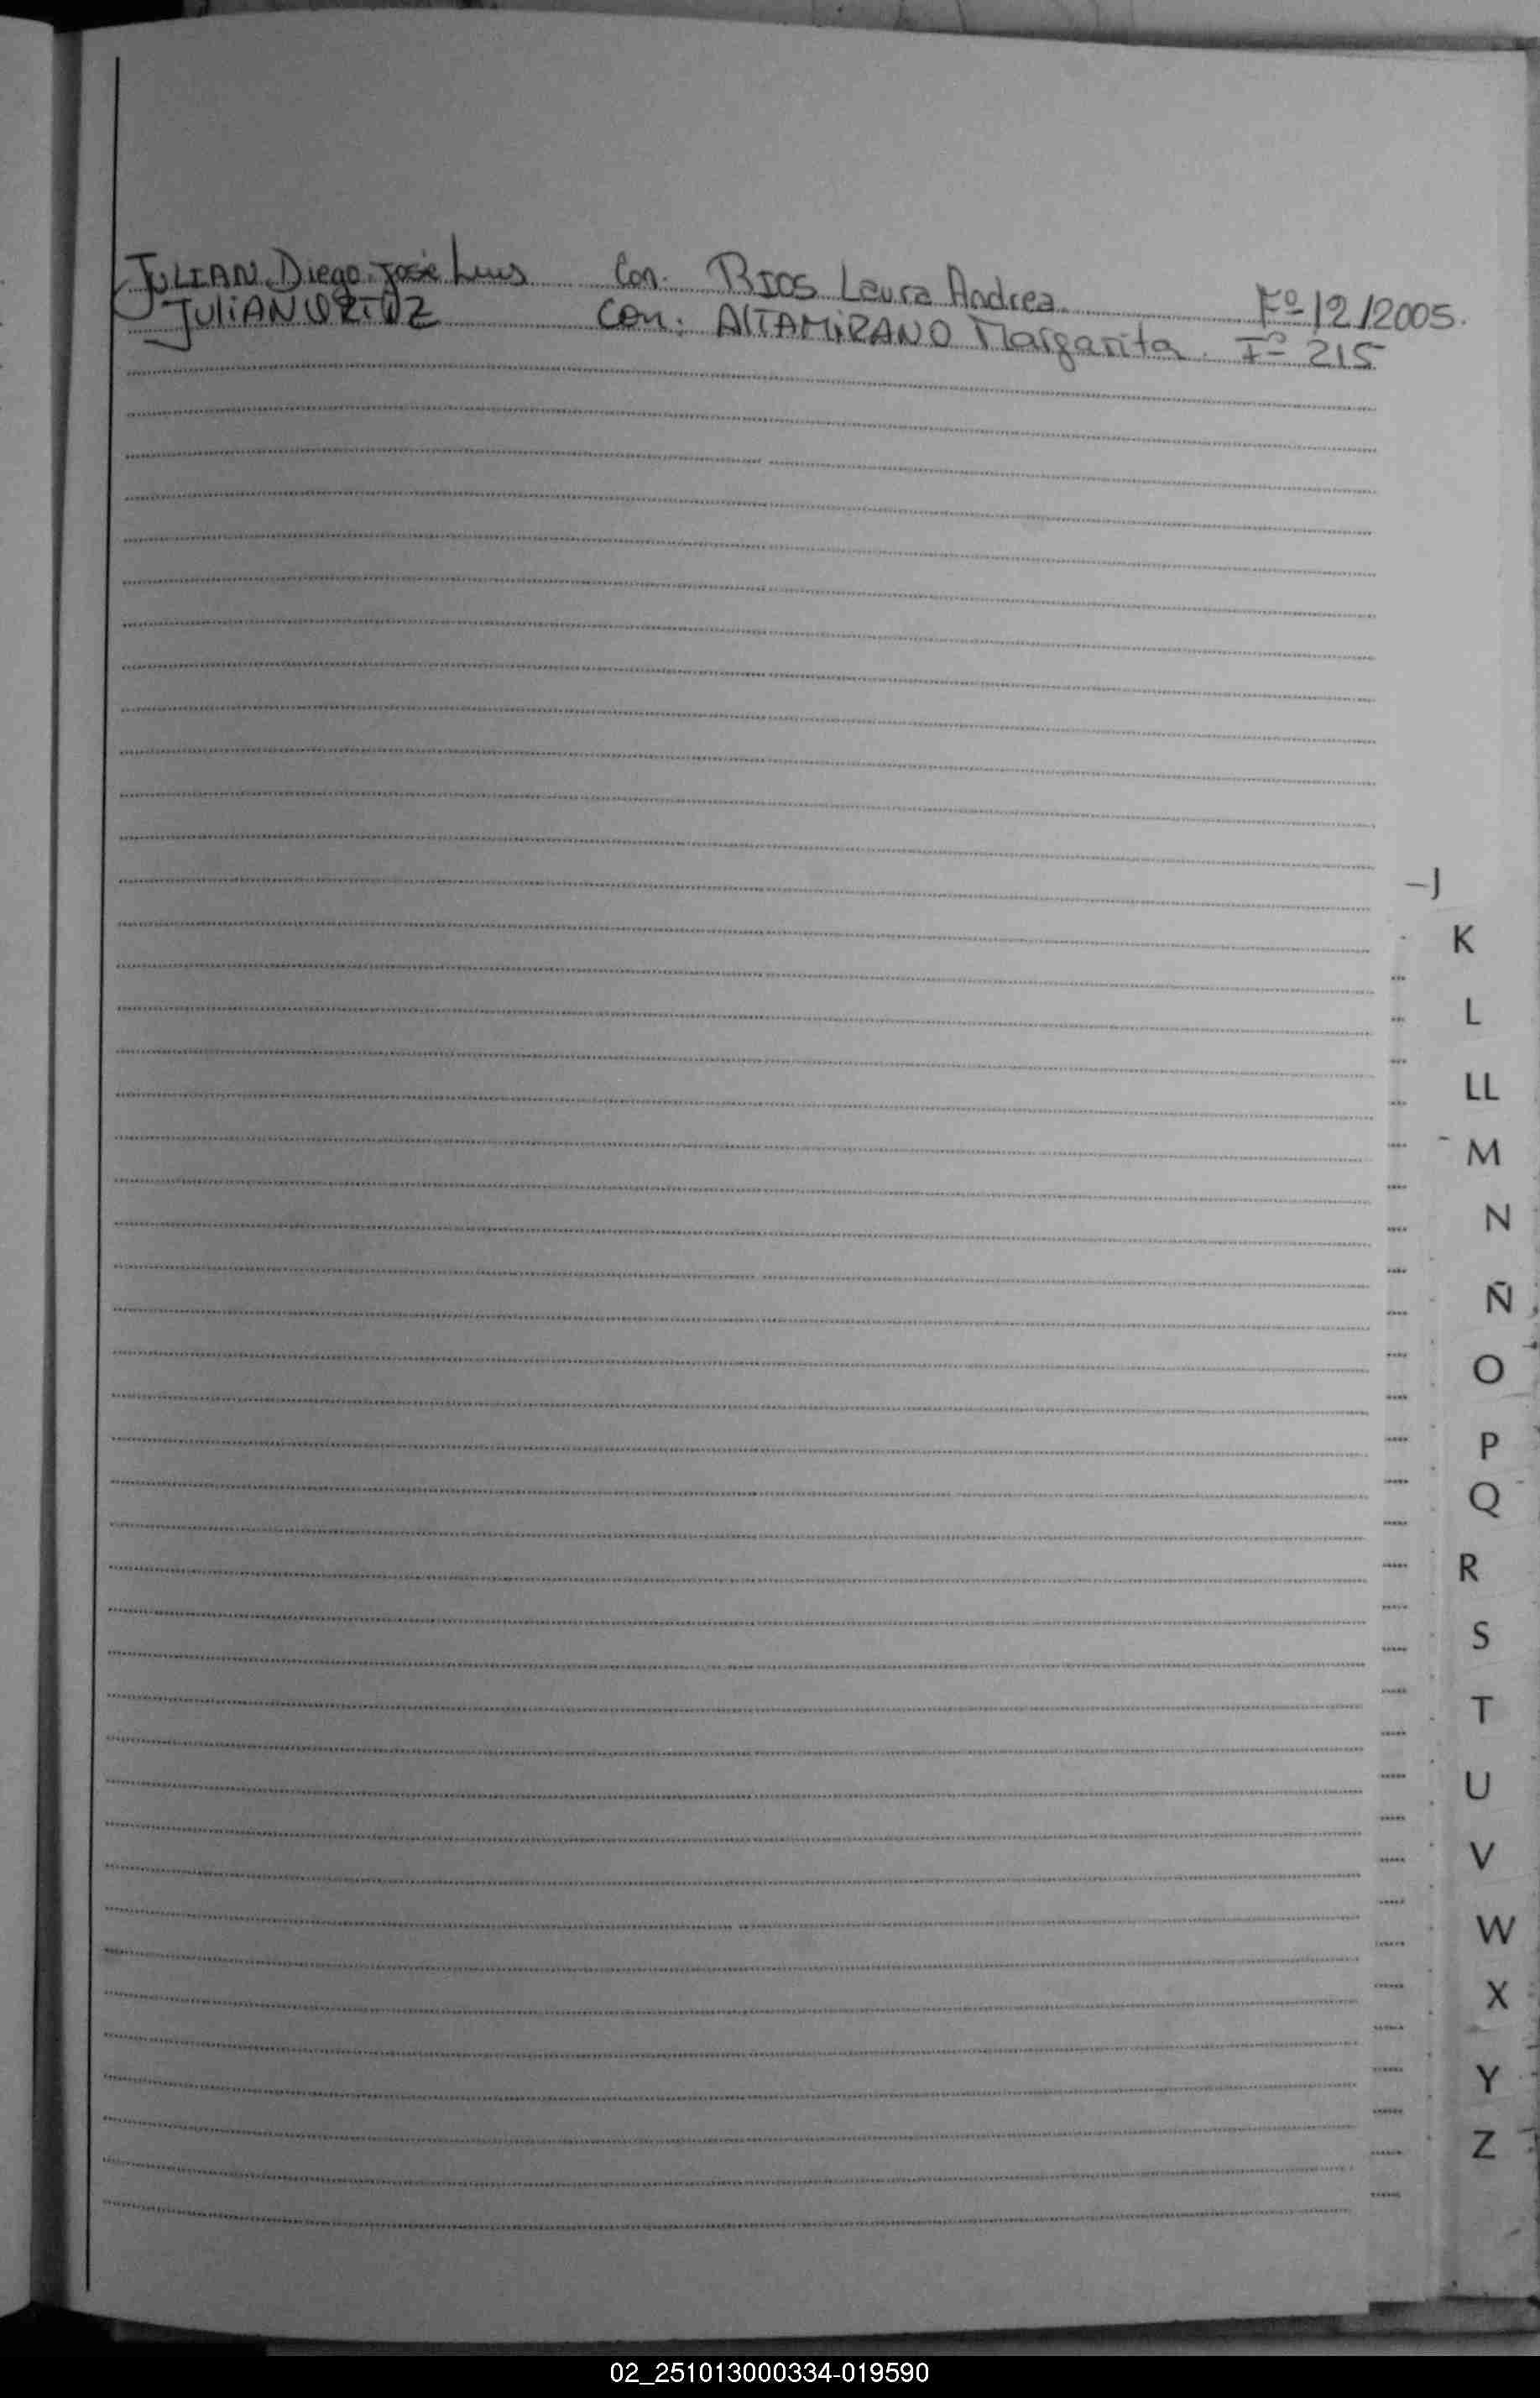 JULIAN Diego José Luis Con. RIOS Laura Andrea Fº 12/2005.
JULIAN Con: AlTAMiRANO Margarita. Fº 215
J
K
L
LL
M
N
Ñ
O
P
Q
R
S
T
U
V
W
X
Y
Z
02_251013000334-019590